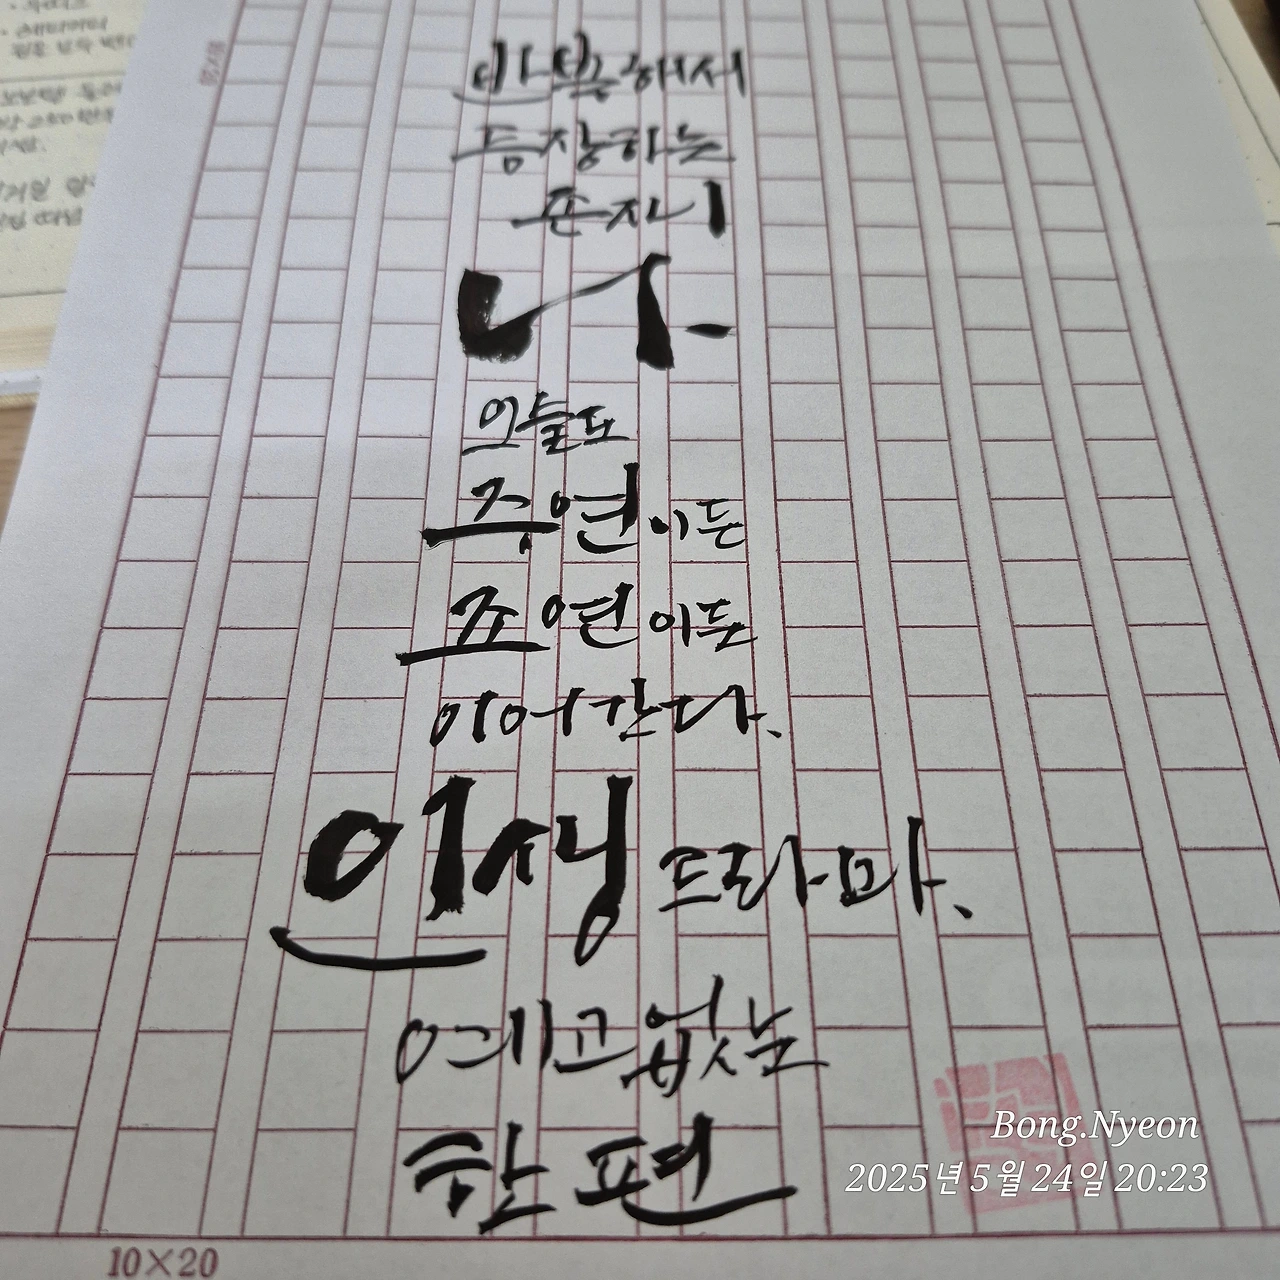 반복해서
등장하는
존재
나.
오늘도
주연이든
조연이든
이어간다.
인생 드라마.
예고없는
한 편
Bong.Nyeon
2025년 5월 24일 20:23
10×20